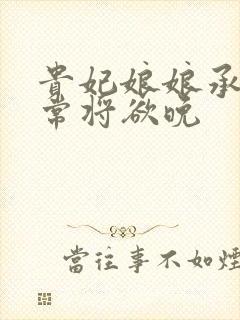 貴妃娘娘承
常将欲晚
當往事不如煙